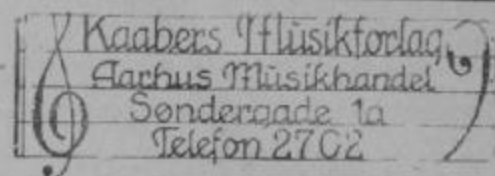 Kaabers Musikforlag
Aarhus Musikhandel
Søndergade 1a
Telefon 2702